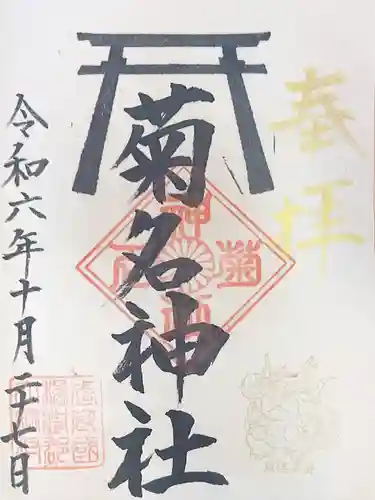 奉拝
菊名神社
令和六年十月二十七日